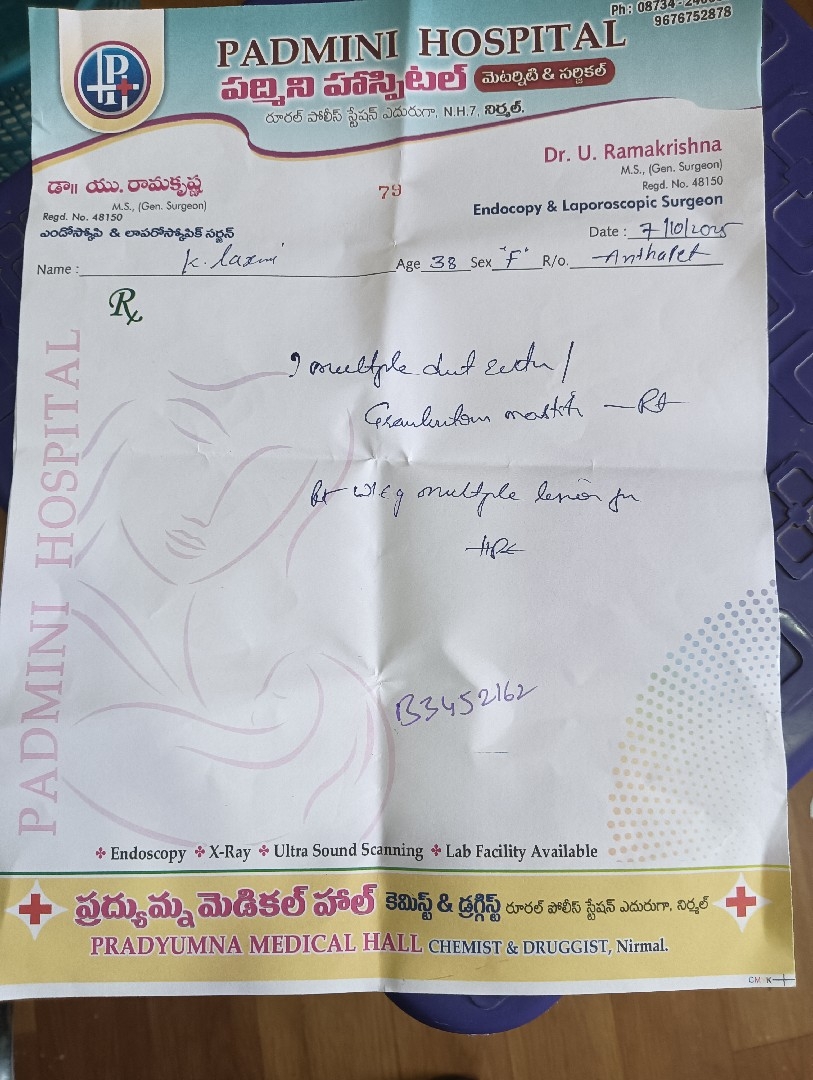 Ph : 08734-
9676752878
PADMINI HOSPITAL
పద్మిని హాస్పిటల్ మెటర్నిటి & సర్జికల్
రూరల్ పోలీస్ స్టేషన్ ఎదురుగా, N.H.7, నిర్మల్.
డా॥ యు. రామకృష్ణ
M.S., (Gen. Surgeon)
Regd. No. 48150
ఎండోస్కోపి & లాపరోస్కోపిక్ సర్జన్
79
Dr. U. Ramakrishna
M.S., (Gen. Surgeon)
Regd. No. 48150
Endocopy & Laporoscopic Surgeon
Date : 7/10/2025
Name : K. Laxmi Age 38 Sex "F" R/o.
Rx
multiple duct
Rt
multiple lesion for
HPE
B3452162
PADMINI HOSPITAL
Endoscopy X-Ray Ultra Sound Scanning Lab Facility Available
ప్రద్యుమ్న మెడికల్ హాల్ కెమిస్ట్ & డ్రగ్గిస్ట్ రూరల్ పోలీస్ స్టేషన్ ఎదురుగా, నిర్మల్
PRADYUMNA MEDICAL HALL CHEMIST & DRUGGIST, Nirmal.
CMYK